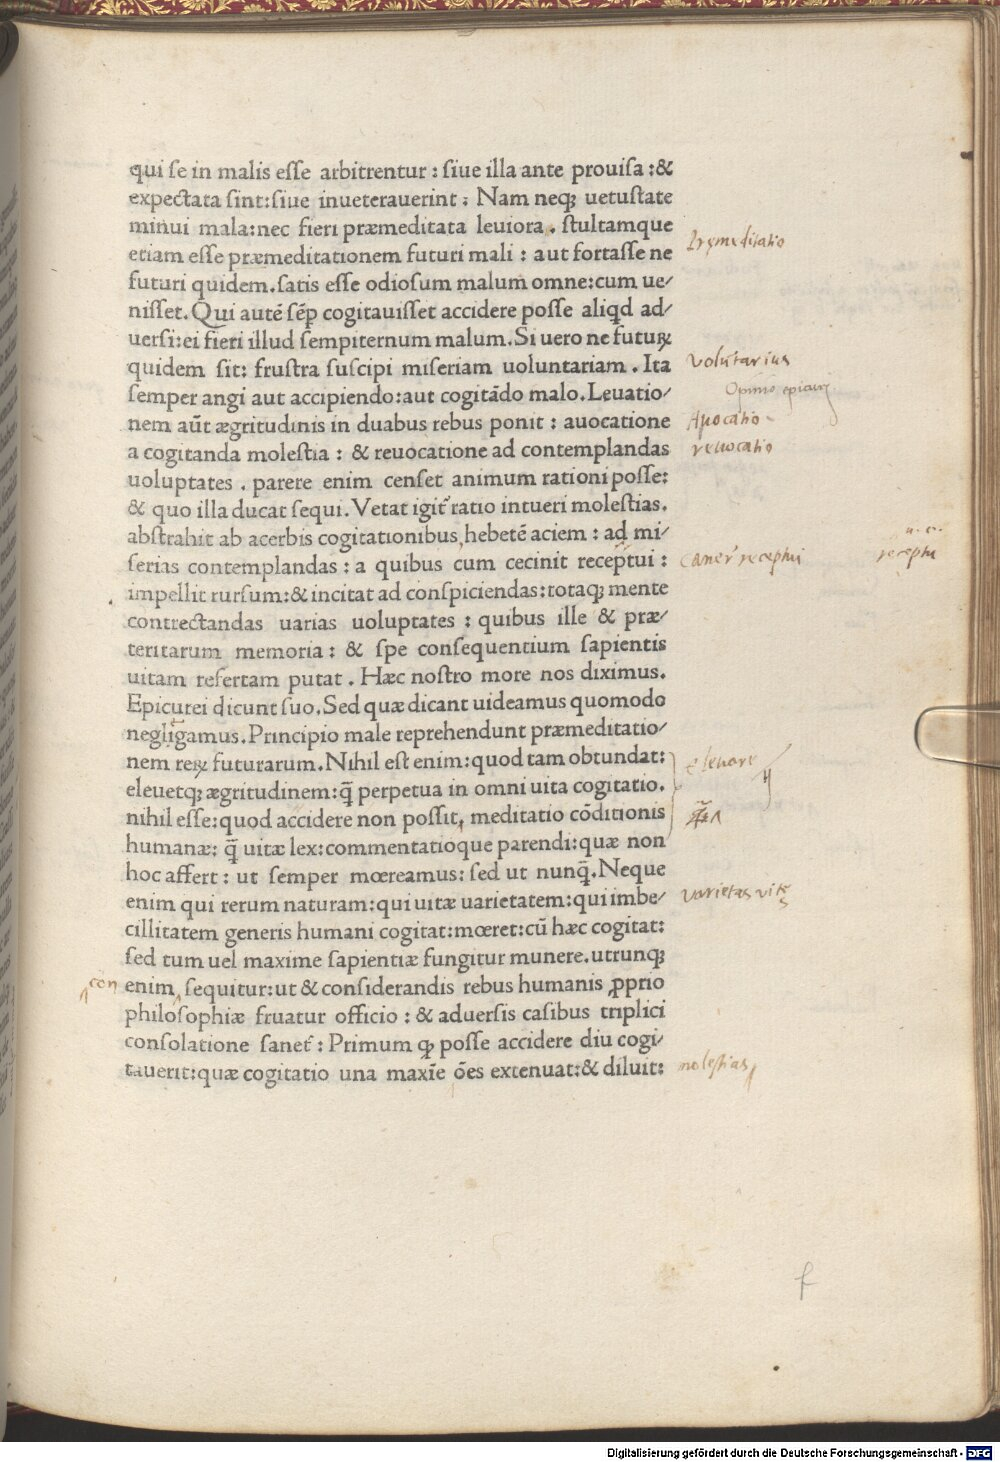 qui se in malis esse arbitrentur : siue illa ante prouisa :&
expectata sint:siue inueterauerint ; Nam neqꝫ uetustate
minui mala:nec fieri præmeditata leuiora . stultamque
etiam esse præmeditationem futuri mali : aut fortasse ne
Pręmeditatio
futuri quidem.satis esse odiosum malum omne:cum ue⸗
nisset.Qui autē sēp cogitauisset accidere posse aliqd ad⸗
uersi:ei fieri illud sempiternum malum.Si uero ne futuꝝ
quidem sit: frustra suscipi miseriam uoluntariam . Ita
volūtarius
semper angi aut accipiendo:aut cogitādo malo.Leuatio⸗
Opinio epicuri
nem aūt ægritudinis in duabus rebus ponit : auocatione
Auocatio
a cogitanda molestia : & reuocatione ad contemplandas
reuocatio
uoluptates . parere enim censet animum rationi posse:
& quo illa ducat sequi.Vetat igit̃ ratio intueri molestias.
abstrahit ab acerbis cogitationibus,hebetē aciem : ad mi⸗
serias contemplandas : a quibus cum cecinit receptui :
caner̃ receptui
receptu
impellit rursum:& incitat ad conspiciendas:totaqꝫ mente
contrectandas uarias uoluptates : quibus ille & præ⸗
teritarum memoria : & spe consequentium sapientis
uitam refertam putat . Hæc nostro more nos diximus.
Epicurei dicunt suo.Sed quæ dicant uideamus quomodo
negligamus.Principio male reprehendunt præmeditatio⸗
nem reꝝ futurarum.Nihil est enim:quod tam obtundat:
eleuare
eleuetqꝫ ægritudinem:q̄ perpetua in omni uita cogitatio.
nihil esse:quod accidere non possit, meditatio cōditionis
humanæ: q̄ uitæ lex:commentatioque parendi:quæ non
hoc affert : ut semper mœreamus: sed ut nunq̄.Neque
enim qui rerum naturam:qui uitæ uarietatem:qui imbe⸗
varietas vitę
cillitatem generis humani cogitat:mœret:cū hæc cogitat:
sed tum uel maxime sapientiæ fungitur munere.utrunqꝫ
con
enim sequitur:ut & considerandis rebus humanis ꝓprio
philosophiæ fruatur officio : & aduersis casibus triplici
consolatione sanet̃ : Primum ꝙ posse accidere diu cogi⸗
tauerit:quæ cogitatio una maxīe ōes extenuat:& diluit:
molestias
f
Digitalisierung gefördert durch die Deutsche Forschungsgemeinschaft - DFG